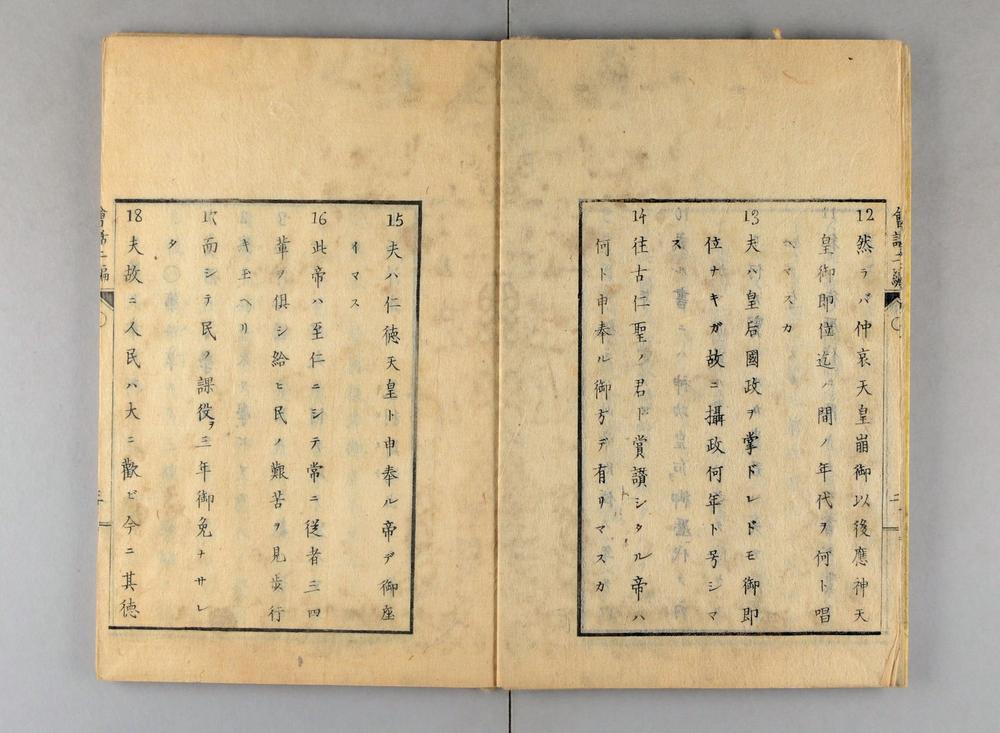 12 然ラバ仲哀天皇崩御以後應神天
皇御即位迄ノ間ノ年代ヲ何ト唱
ヘマスカ
13 夫ハ皇后國政ヲ掌ドレドモ御即
位ナキガ故ニ攝政何年ト号シマ
ス
14 往古仁聖ノ君ト賞讃シタル帝ハ
何ト申奉ル御方デ有リマスカ
15 夫ハ仁徳天皇ト申奉ル帝デ御座
イマス
16 此帝ハ至仁ニシテ常ニ従者三四
輩ヲ俱シ給ヒ民ノ艱苦ヲ見歩行
キ玉ヘリ
17 而シテ民ノ課役ヲ三年御免ナサレ
タ
18 夫故ニ人民ハ大ニ歡ビ今ニ其徳
會話二編
會話二編